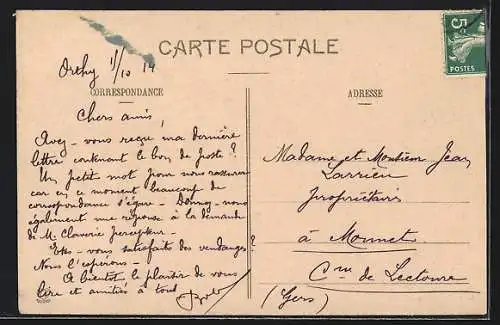 CARTE POSTALE
5c
POSTES
Orthy 1/10 14
CORRESPONDANCE
ADRESSE
Chers amis,
Avez-vous reçu ma dernière
lettre contenant le bon de poste ?
Un petit mot pour nous rassurer
car en ce moment beaucoup de
correspondance s'égare - Donnez-nous
également une réponse à la demande
de M. Claverie percepteur -
Etes-vous satisfaits des vendanges ?
Nous l'espérons -
A bientôt le plaisir de vous
lire et amitiés à tous
Madame et Monsieur Jean
Larrieu
propriétaire
à Monnet
Cne de Lectoure
(Gers)